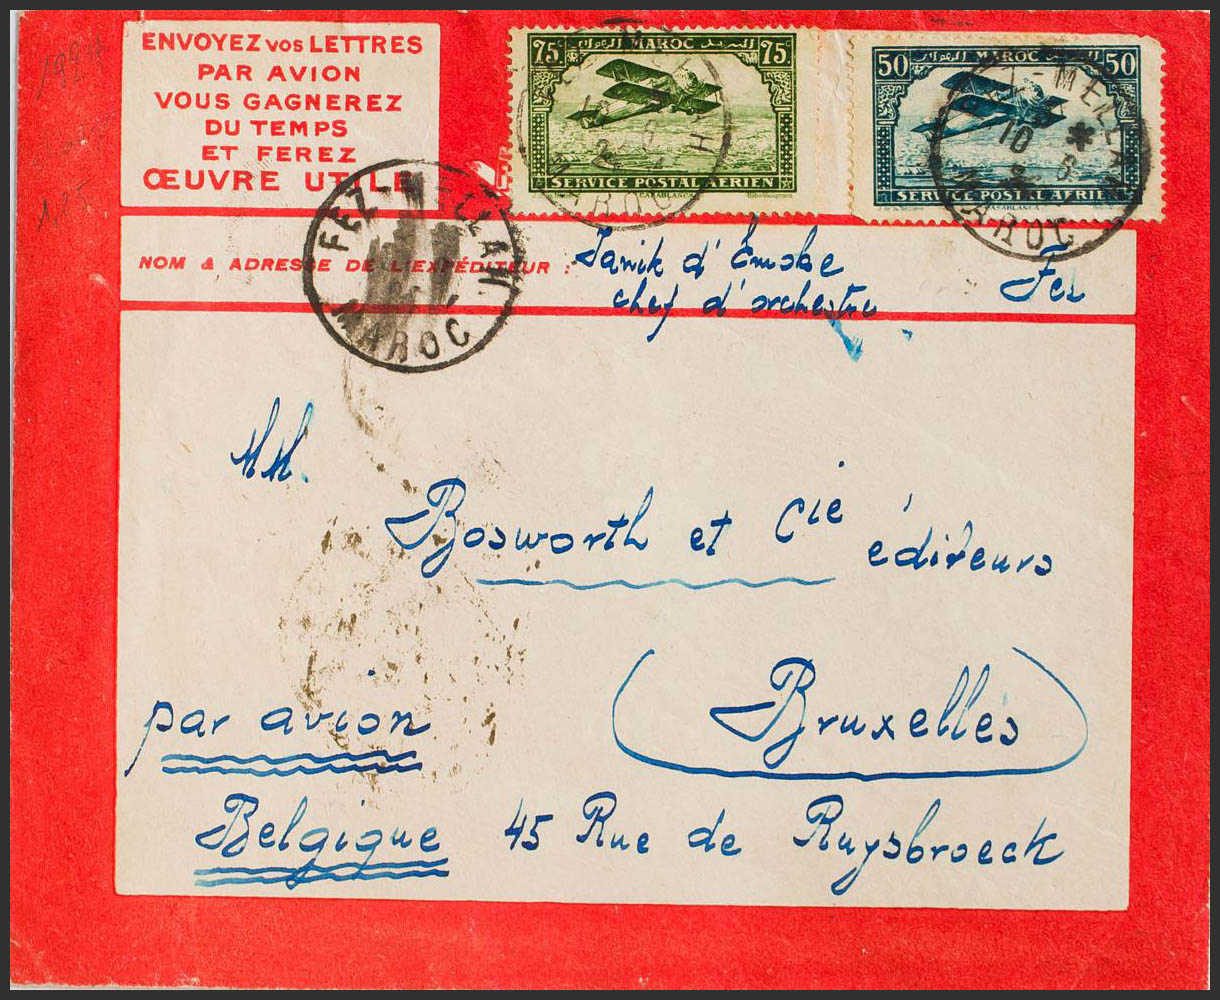 ENVOYEZ VOS LETTRES
PAR AVION
VOUS GAGNEREZ
DU TEMPS
ET FEREZ
ŒUVRE UTILE
75 MAROC البريد 75
SERVICE POSTAL AÉRIEN
CASABLANCA
50 MAROC البريد 50
SERVICE POSTAL AÉRIEN
CASABLANCA
FEZ-MELLAH
MAROC
MELLAH
10
MAROC
NOM & ADRESSE DE L'EXPÉDITEUR :
chef d'orchestre
Fez
MM.
Bosworth et Cie éditeurs
par avion
(Bruxelles)
Belgique 45 Rue de Ruysbroeck